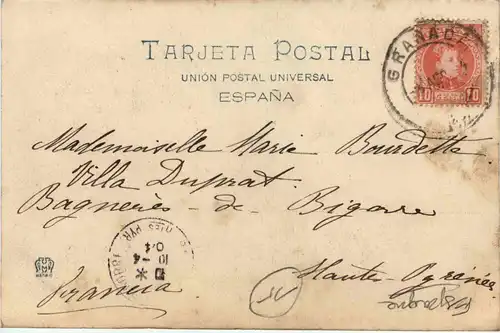 TARJETA POSTAL
UNIÓN POSTAL UNIVERSAL
ESPAÑA
GRANADA
10 10
Mademoiselle Marie Bourdette
Villa Duprat.
Bagnères-de-Bigorre
Hautes-Pyrénées
Francia
HTES PYR
10 -4
04